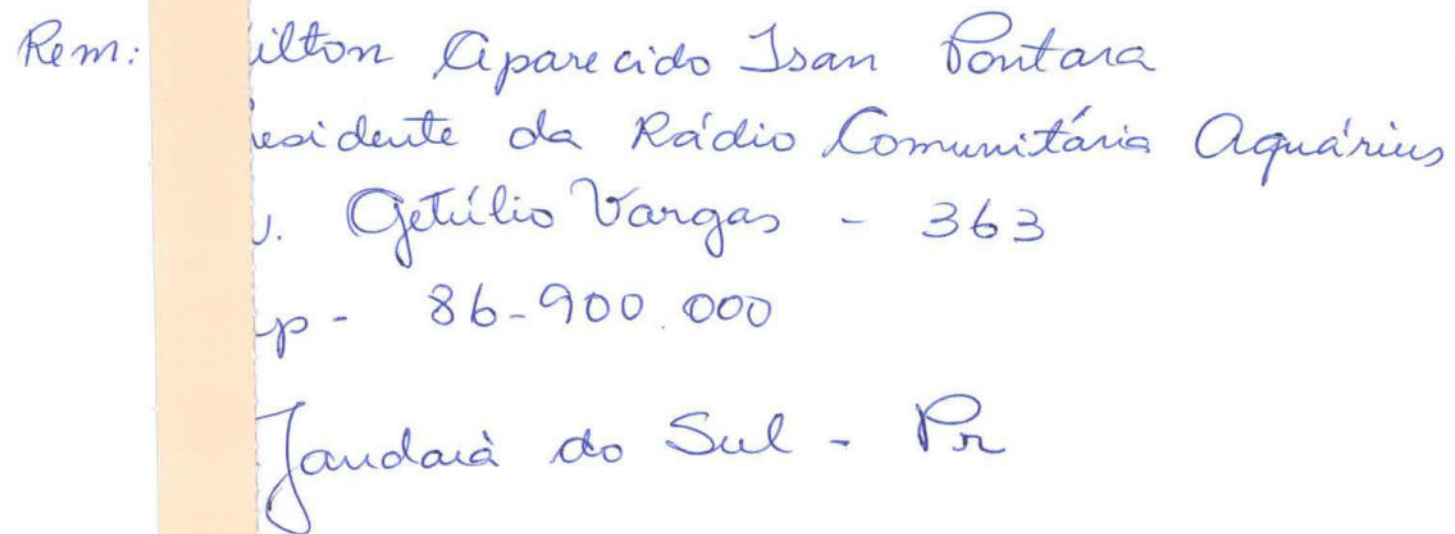 Rem: ilton Aparecido Isan Pontara
residente da Rádio Comunitária Aquárius
v. Getúlio Vargas - 363
ep - 86-900.000
Jandaià do Sul - Pr